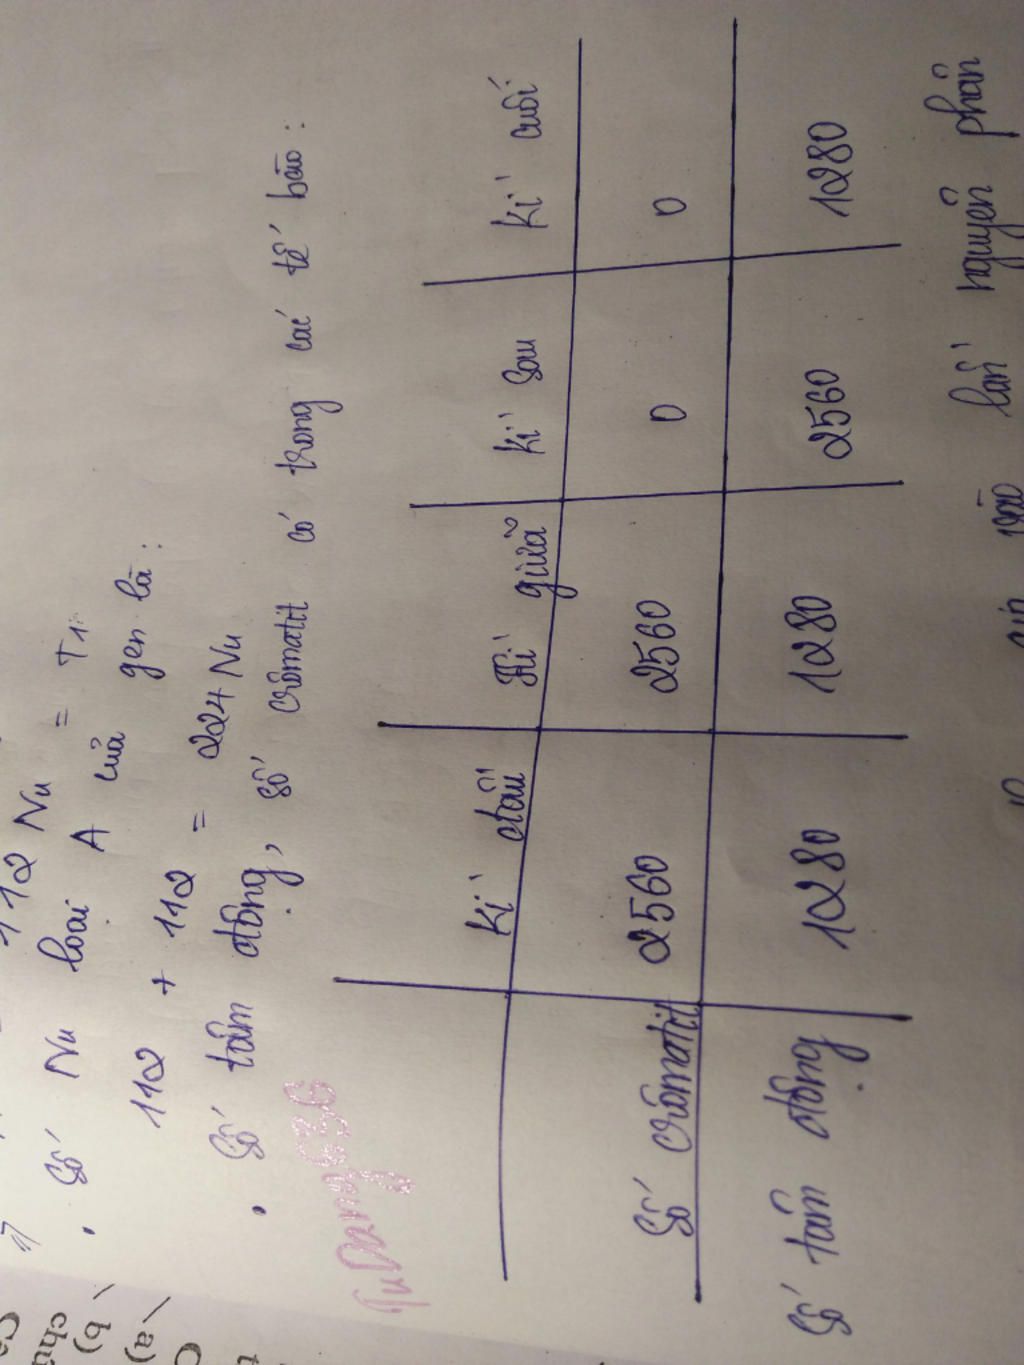 112 Nu = T1
. Số Nu loại A của gen là :
112 + 112 = 224 Nu
. Số tâm động, số crômatit có trong các tế bào :
Kì đầu Kì giữa Kì sau Kì cuối
Số crômatit 2560 2560 0 0
Số tâm động 1280 1280 2560 1280
lần nguyên phân
TuDang636
a)
b)